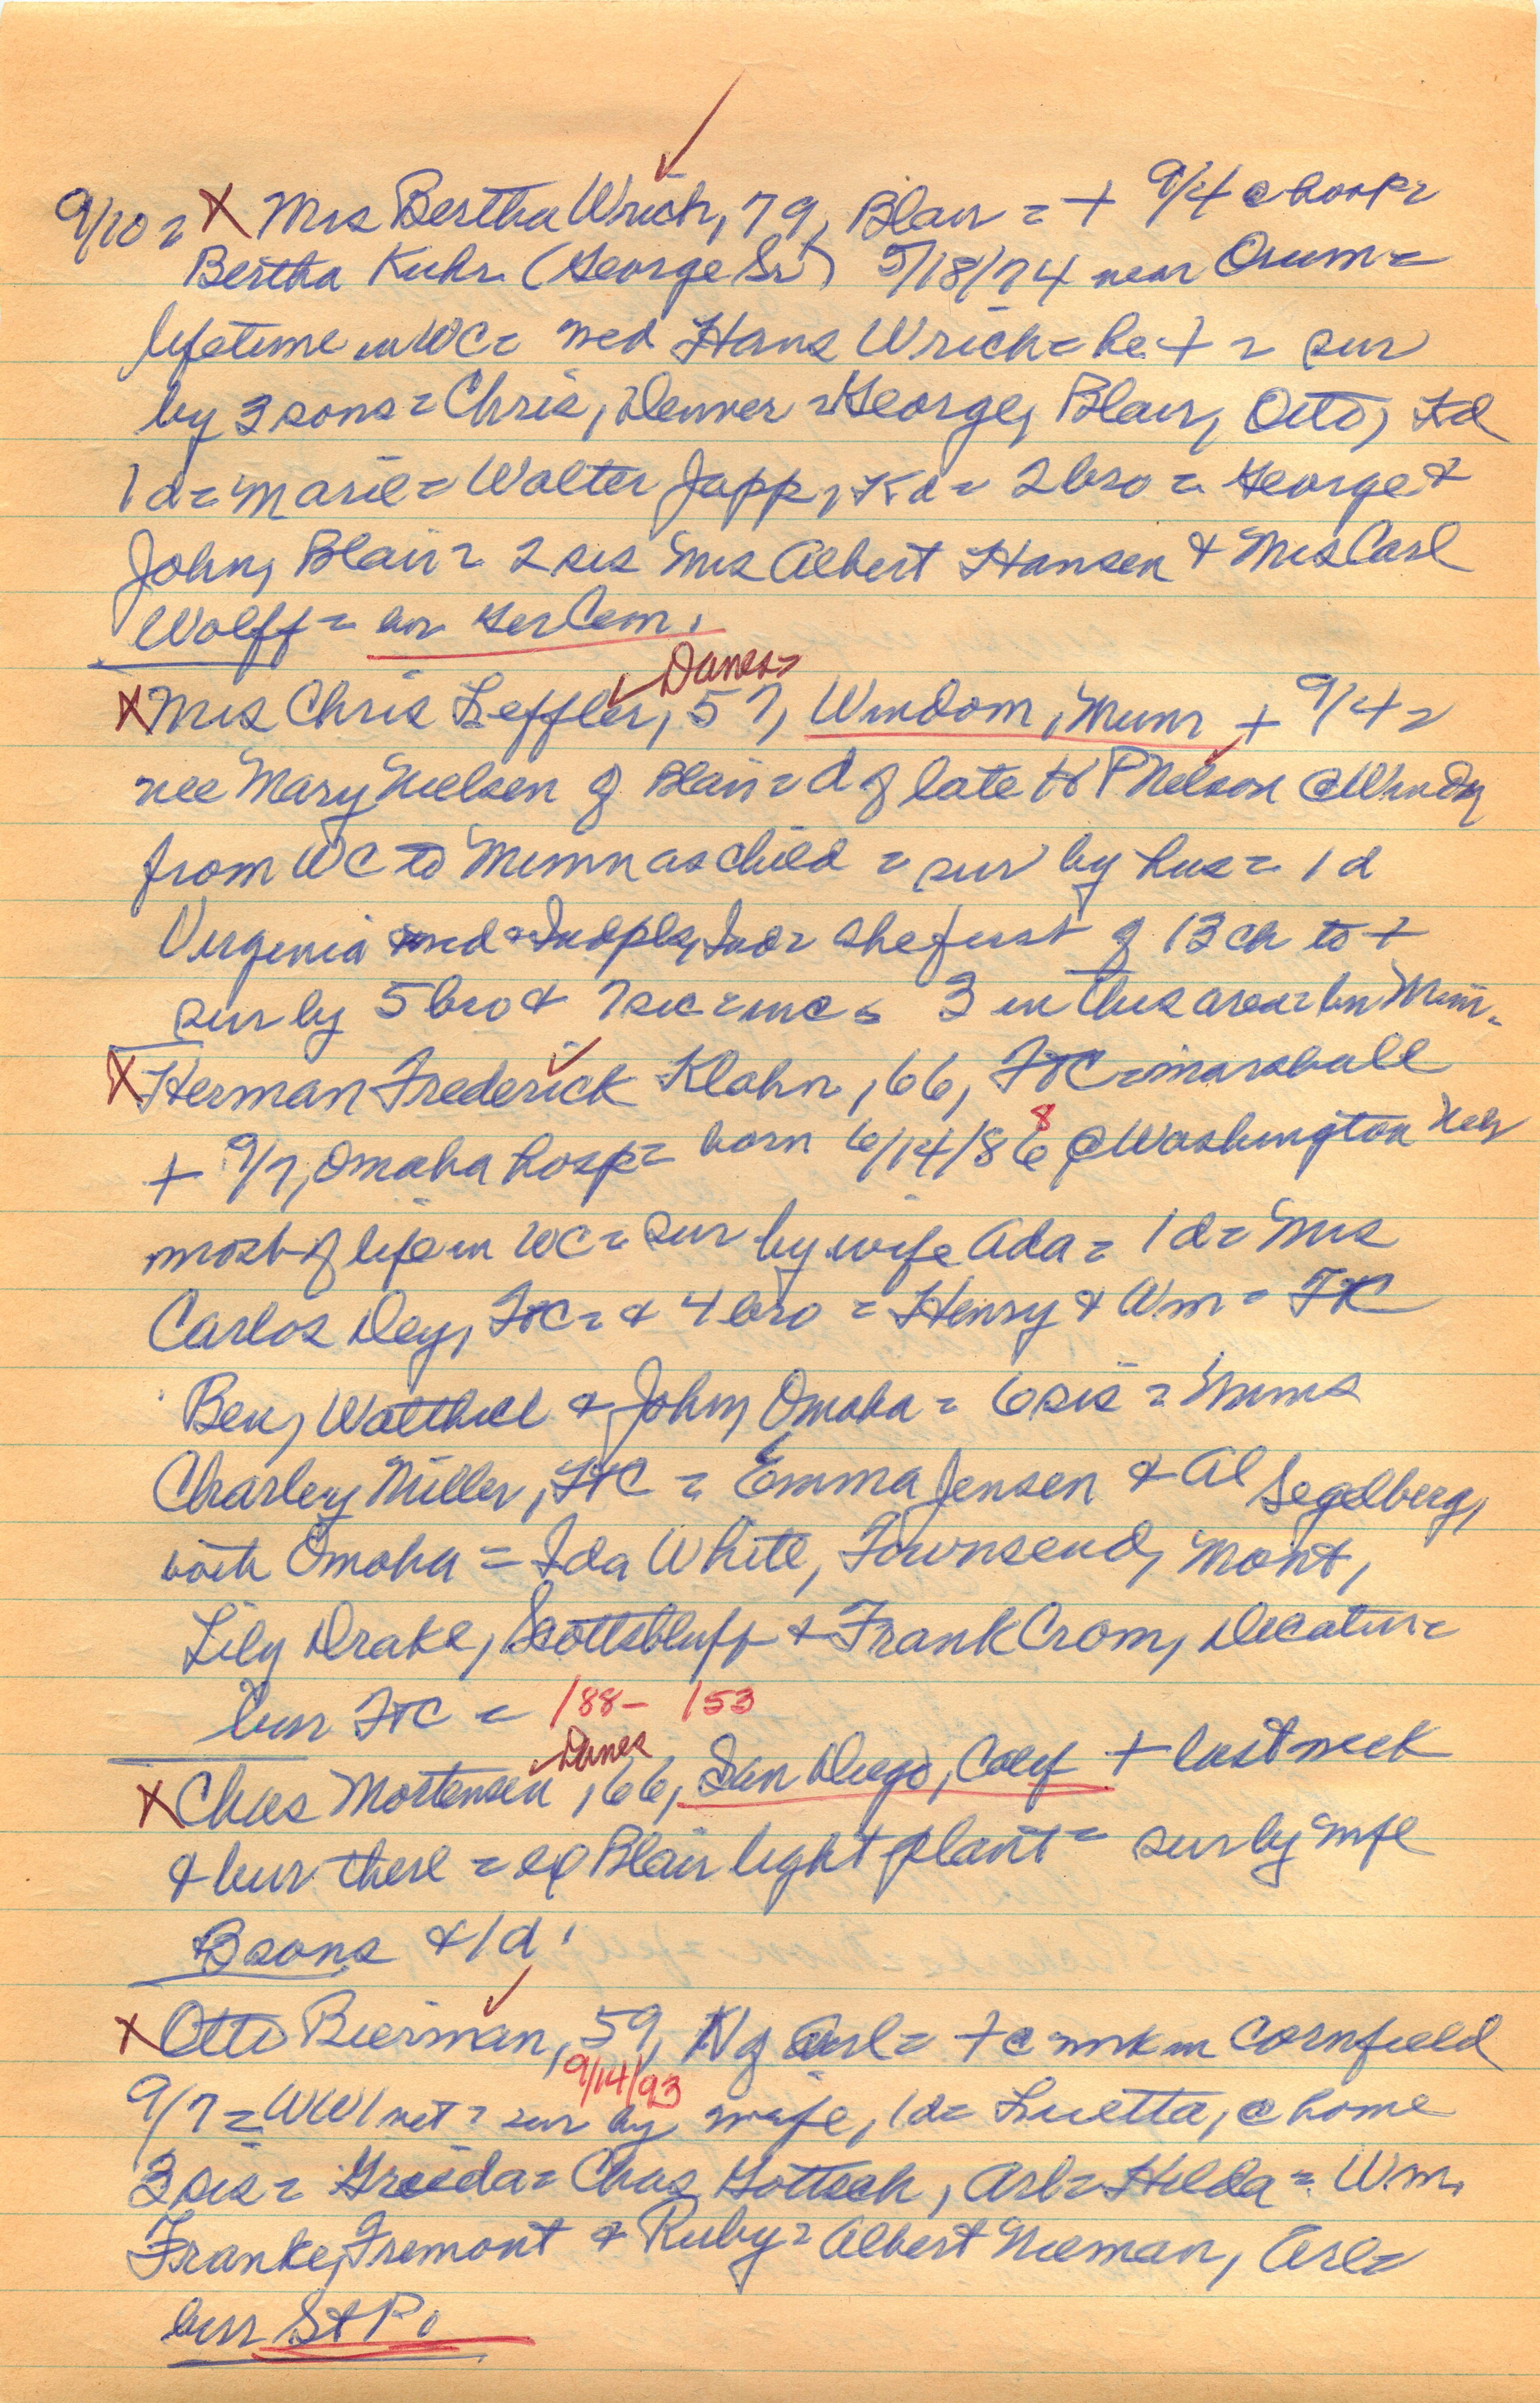 9/10 = X Mrs Bertha Wrich, 79, Blair = + 9/4 @ hosp =
Bertha Kuhr (George Sr) 5/18/74 near Orum =
lifetime in WC = med Hans Wrich = he + = sur
by 3 sons = Chris, Denver = George, Blair, Otto, Kd
1 d = Marie = Walter Japp, Kd = 2 bro = George &
John, Blair = 2 sis Mrs Albert Hansen & Mrs Carl
Wolff = bur Ger Cem.
Danes
X Mrs Chris Leffler, 57, Windom, Minn + 9/4 =
nee Mary Nielsen of Blair = d of late H P Nelson @ Windom
from WC to Minn as child = sur by hus = 1 d
Virginia med = Indpls, Ind = she first of 13 ch to +
sur by 5 bro & 7 sis = inc 3 in this area = bur Minn.
X Herman Frederick Klahn, 66, FTC = marshall
8
+ 9/7, Omaha hosp = born 6/14/86 @ Washington Neb
most of life in WC = sur by wife Ada = 1 d = Mrs
Carlos Dey, FTC = & 4 bro = Henry & Wm = FTC
Ben, Walthill & John, Omaha = 6 sis = Mmes
Charley Miller, FTC = Emma Jensen & Al Segelberg,
both Omaha = Ida White, Townsend, Mont,
Lily Drake, Scottsbluff & Frank Crom, Decatur =
bur FTC = 188 - 153
Danes
X Chas Mortensen, 66, San Diego, Calif + last week
& bur there = op Blair light plant = sur by wife
3 sons & 1 d.
X Otto Bierman, 59, N of Arl = + @ wrk in cornfield
9/14/93
9/7 = WW1 vet = sur by wife, 1 d = Luetta, @ home
3 sis = Grieda = Chas Gottsch, Arl = Hilda = Wm.
Franke, Fremont & Ruby = Albert Nieman, Arl =
bur St P.